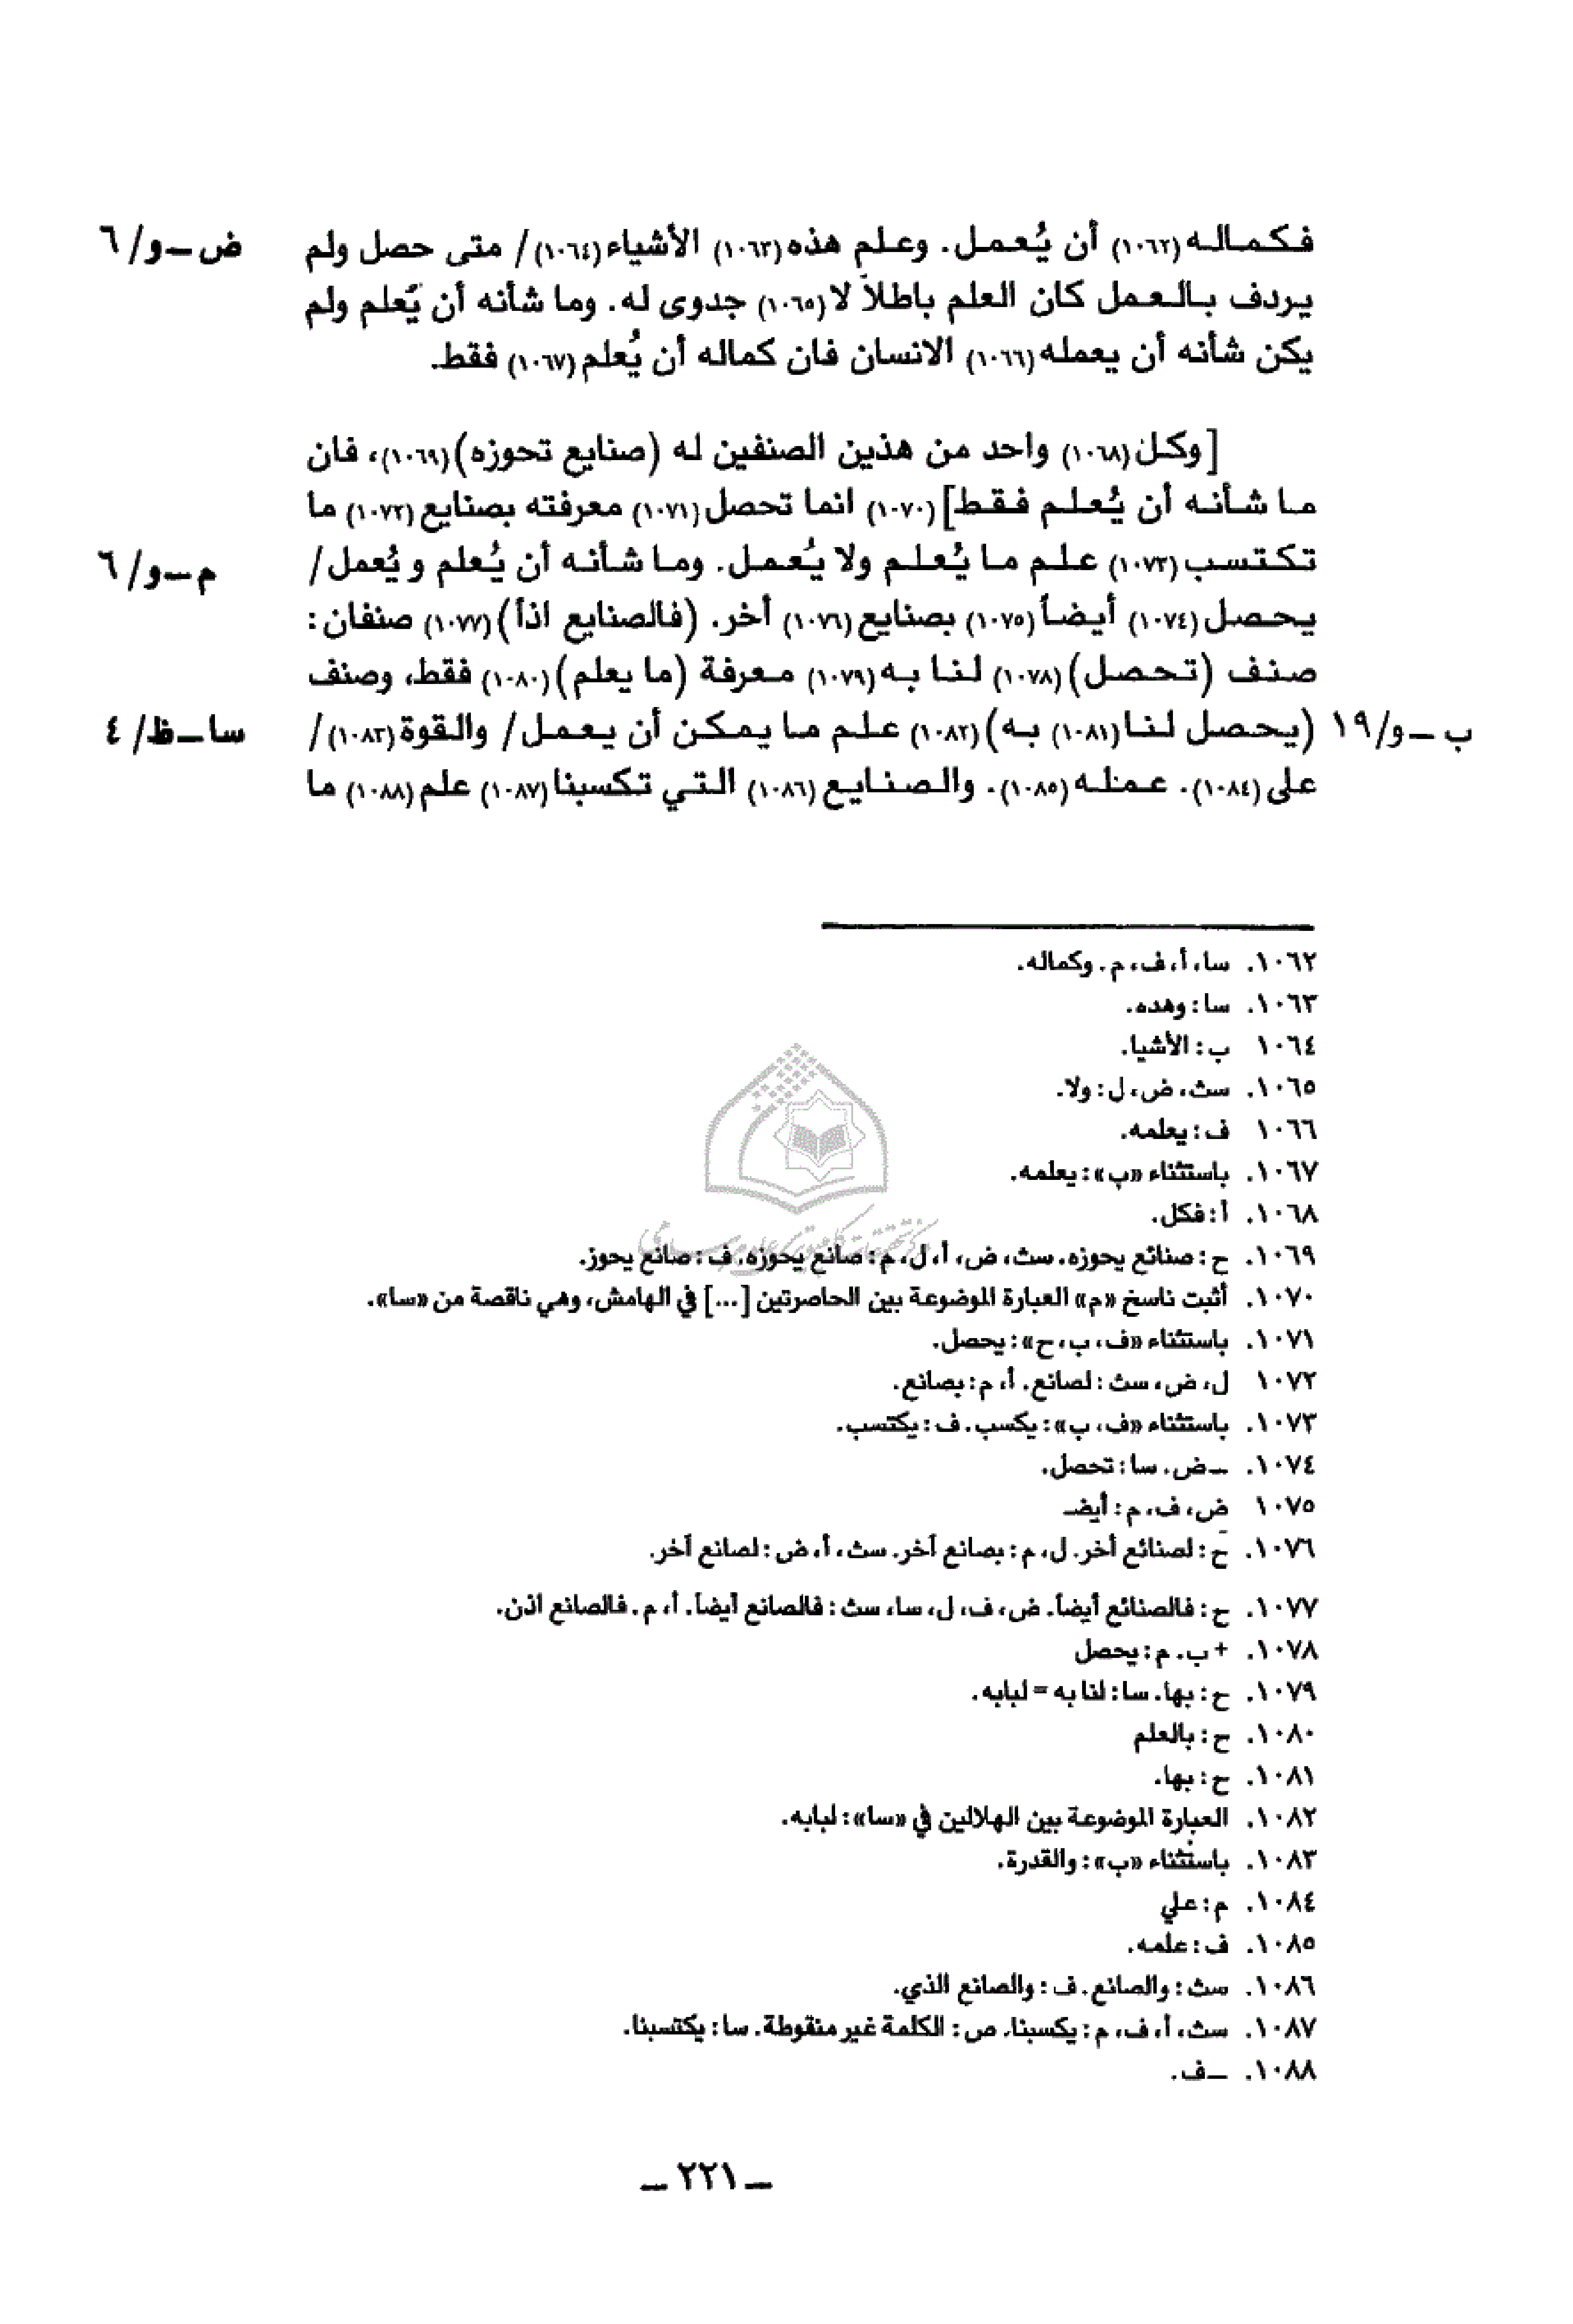 فكماله (١٠٦٢) أن يُعمل. وعلم هذه (١٠٦٣) الأشياء (١٠٦٤)/ متى حصل ولم ض ــ و/ ٦
يردف بالعمل كان العلم باطلاً لا (١٠٦٥) جدوى له. وما شأنه أن يُعلم ولم
يكن شأنه أن يعمله (١٠٦٦) الانسان فان كماله أن يُعلم (١٠٦٧) فقط.
[وكل (١٠٦٨) واحد من هذين الصنفين له (صنايع تحوزه) (١٠٦٩)، فان
ما شأنه أن يُعلم فقط] (١٠٧٠) انما تحصل (١٠٧١) معرفته بصنايع (١٠٧٢) ما
تكتسب (١٠٧٣) علم ما يُعلم ولا يُعمل. وما شأنه أن يُعلم و يُعمل/ م ــ و/ ٦
يحصل (١٠٧٤) أيضاً (١٠٧٥) بصنايع (١٠٧٦) أخر. (فالصنايع اذاً) (١٠٧٧) صنفان:
صنف (تحصل) (١٠٧٨) لنا به (١٠٧٩) معرفة (ما يعلم) (١٠٨٠) فقط، وصنف
ب ــ و/ ١٩ (يحصل لنا (١٠٨١) به) (١٠٨٢) علم ما يمكن أن يعمل/ والقوة (١٠٨٣)/ سا ــ ظ/ ٤
على (١٠٨٤). عمله (١٠٨٥). والصنايع (١٠٨٦) التي تكسبنا (١٠٨٧) علم (١٠٨٨) ما
١٠٦٢. سا، أ، ف، م. وكماله.
١٠٦٣. سا: وهده.
١٠٦٤ ب: الأشيا.
١٠٦٥. سث، ض، ل: ولا.
١٠٦٦ ف: يعلمه.
١٠٦٧. باستثناء «ب»: يعلمه.
١٠٦٨. أ: فكل.
١٠٦٩. ح: صنائع يحوزه. سث، ض، أ، ل، م: صانع يحوزه. ف: صانع يحوز.
١٠٧٠. أثبت ناسخ «م» العبارة الموضوعة بين الحاصرتين [...] في الهامش، وهي ناقصة من «سا».
١٠٧١. باستثناء «ف، ب، ح»: يحصل.
١٠٧٢ ل، ض، سث: لصانع. أ، م: بصانع.
١٠٧٣. باستثناء «ف، ب»: يكسب. ف: يكتسب.
١٠٧٤. ــ ض. سا: تحصل.
١٠٧٥ ض، ف، م: أيضـ
١٠٧٦. ح: لصنائع أخر. ل، م: بصانع آخر. سث، أ، ض: لصانع آخر.
١٠٧٧. ح: فالصنائع أيضاً. ض، ف، ل، سا، سث: فالصانع أيضاً. أ، م. فالصانع اذن.
١٠٧٨. + ب. م: يحصل
١٠٧٩. ح: بها. سا: لنا به = لبابه.
١٠٨٠. ح: بالعلم
١٠٨١. ح: بها.
١٠٨٢. العبارة الموضوعة بين الهلالين في «سا»: لبابه.
١٠٨٣. باستثناء «ب»: والقدرة.
١٠٨٤. م: علي
١٠٨٥. ف: علمه.
١٠٨٦. سث: والصانع. ف: والصانع الذي.
١٠٨٧. سث، أ، ف، م: يكسبنا. ص: الكلمة غير منقوطة. سا: يكتسبنا.
١٠٨٨. ــ ف.
ــ ٢٢١ ــ